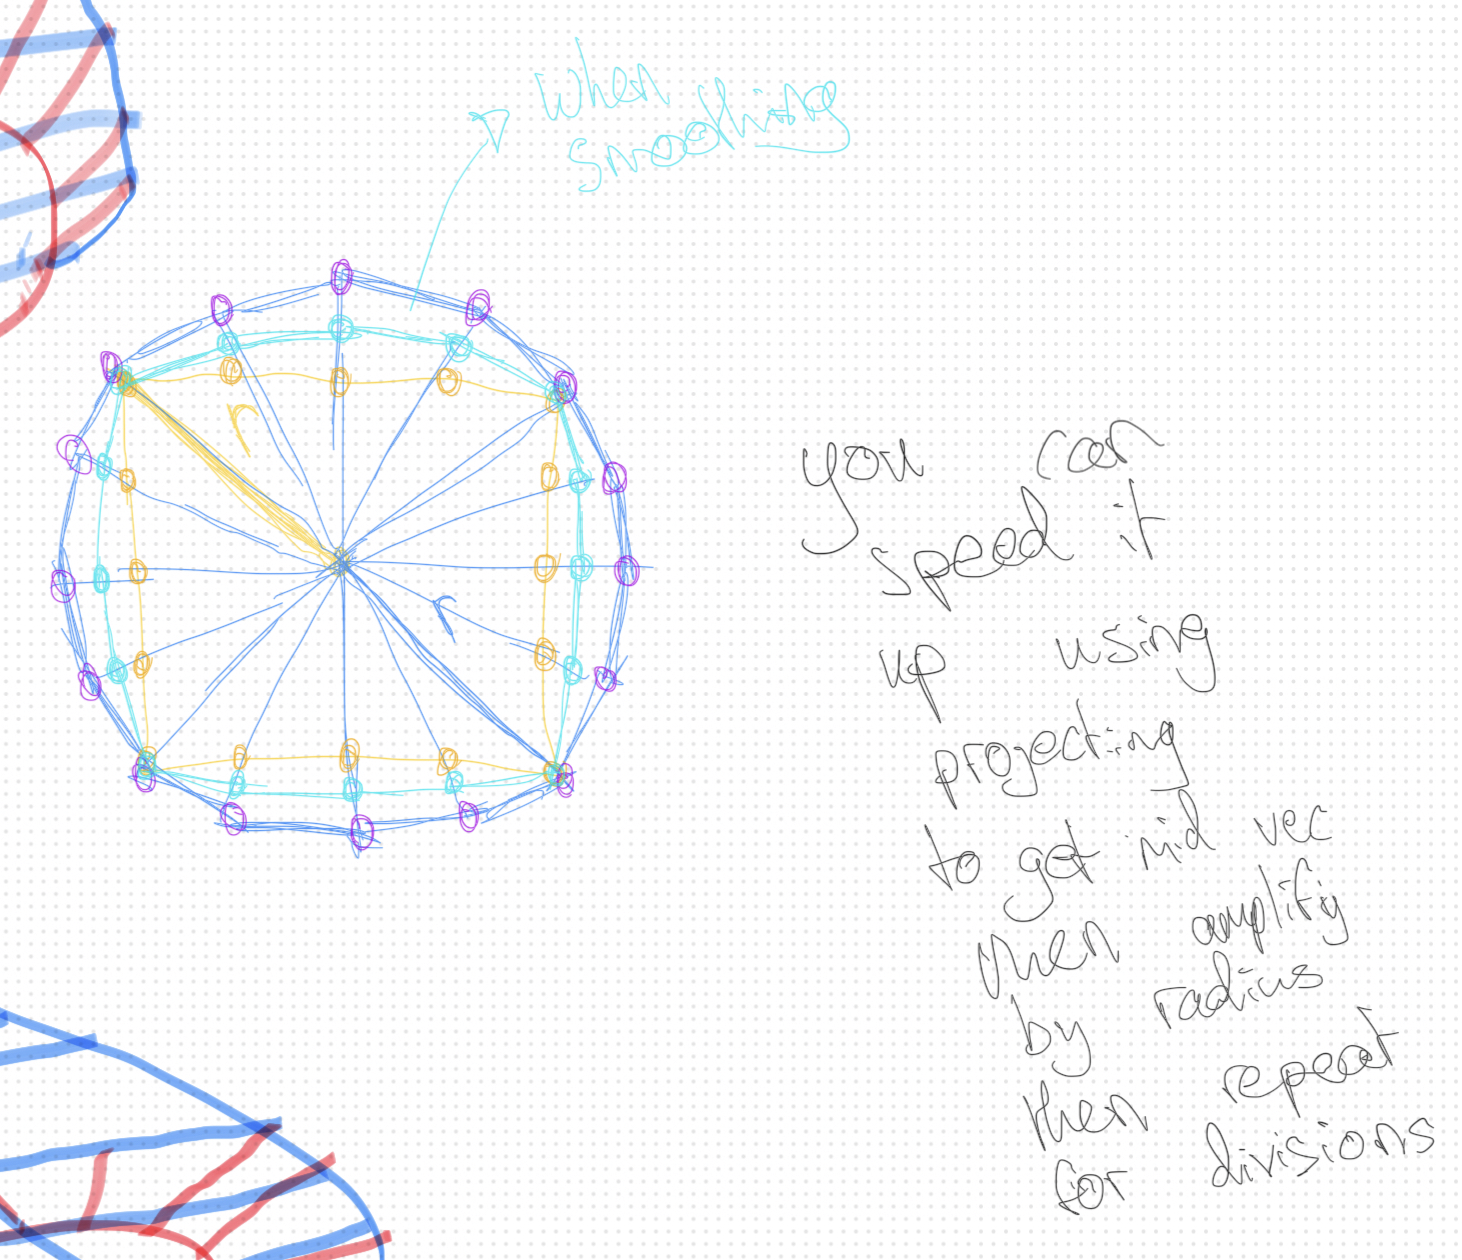 When
smoothing
r
r
you can
speed it
up using
projecting
to get mid vec
then amplify
by radius
then repeat
for divisions